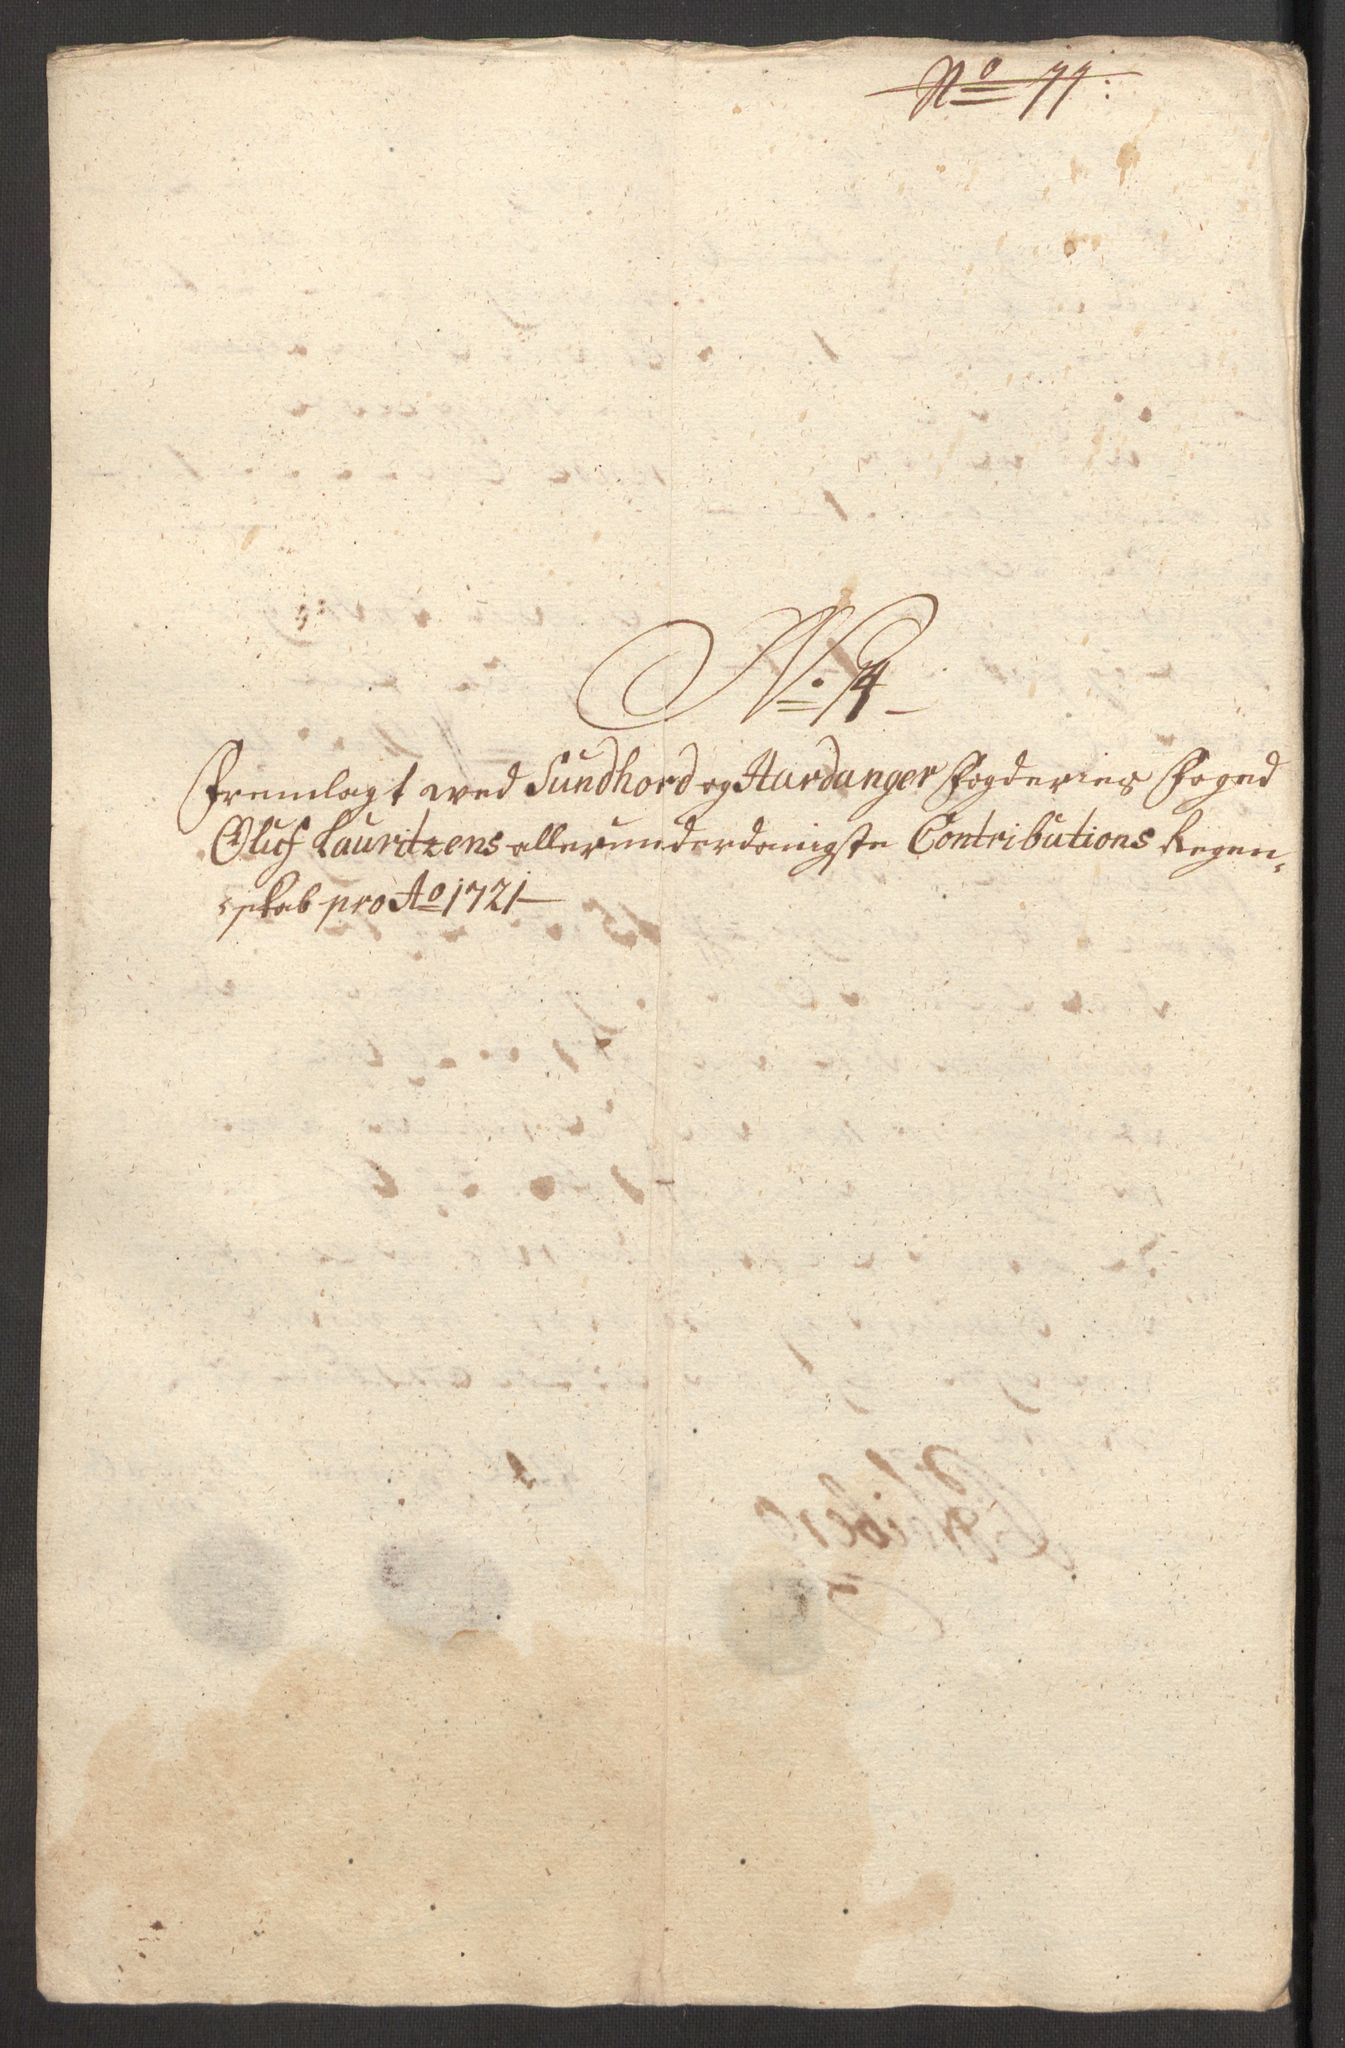 No 77:
No. 74
Fremlagt wed Sundhord og Hardanger Fogderies Foged
Oluf Lauritzens allerunderdanigste Contributions Regen-
skab pro Ao 1721